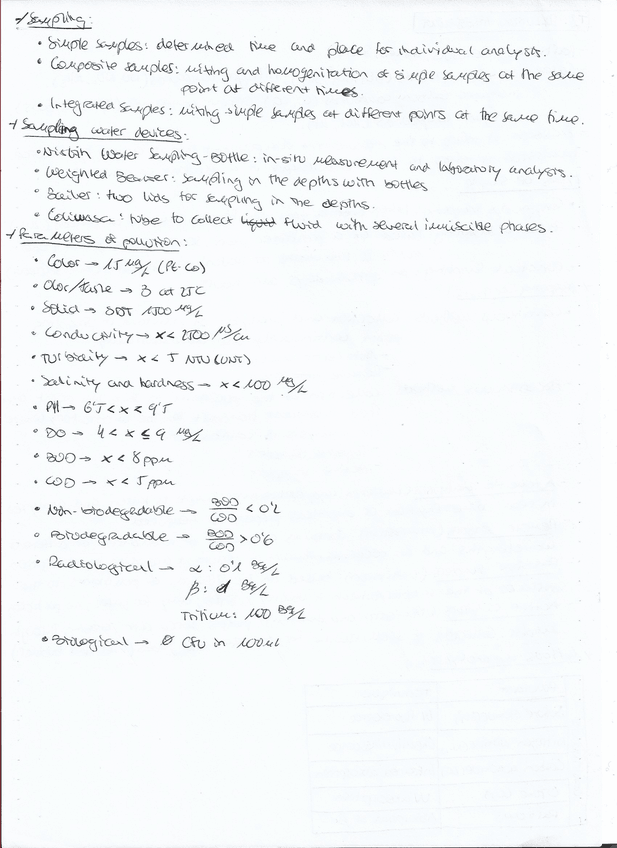 → Sampling:
• Simple samples: determined time and place for individual analysis.
• Composite samples: mixting and homogenitation of simple samples at the same
point at different times.
• Integrated samples: mixting simple samples at different points at the same time.
→ Sampling water devices:
• Niskin Water Sampling-Bottle: in-situ measurement and laboratory analysis.
• Weighted Beamer: sampling in the depths with bottles
• Bailer: two lids for sampling in the depths.
• Coliwasa: tube to collect liquid fluid with several inmiscible phases.
→ Parameters of pollution:
• Color → 15 mg/L (Pt-Co)
• Olor/taste → 3 at 25C
• Solid → SDT 1500 mg/L
• Conductivity → x < 2500 µS/cm
• Turbidity → x < 5 NTU (UNT)
• Salinity and hardness → x < 100 mg/L
• PH → 6'5 < x < 9'5
• DO → 4 < x ≤ 9 mg/L
• BOD → x < 8 ppm
• COD → x < 5 ppm
• Non-biodegradable → BOD/COD < 0'2
• Biodegradable → BOD/COD > 0'6
• Radiological → α: 0'1 Bq/L
β: 1 Bq/L
Tritium: 100 Bq/L
• Biological → Ø CFU in 100ml